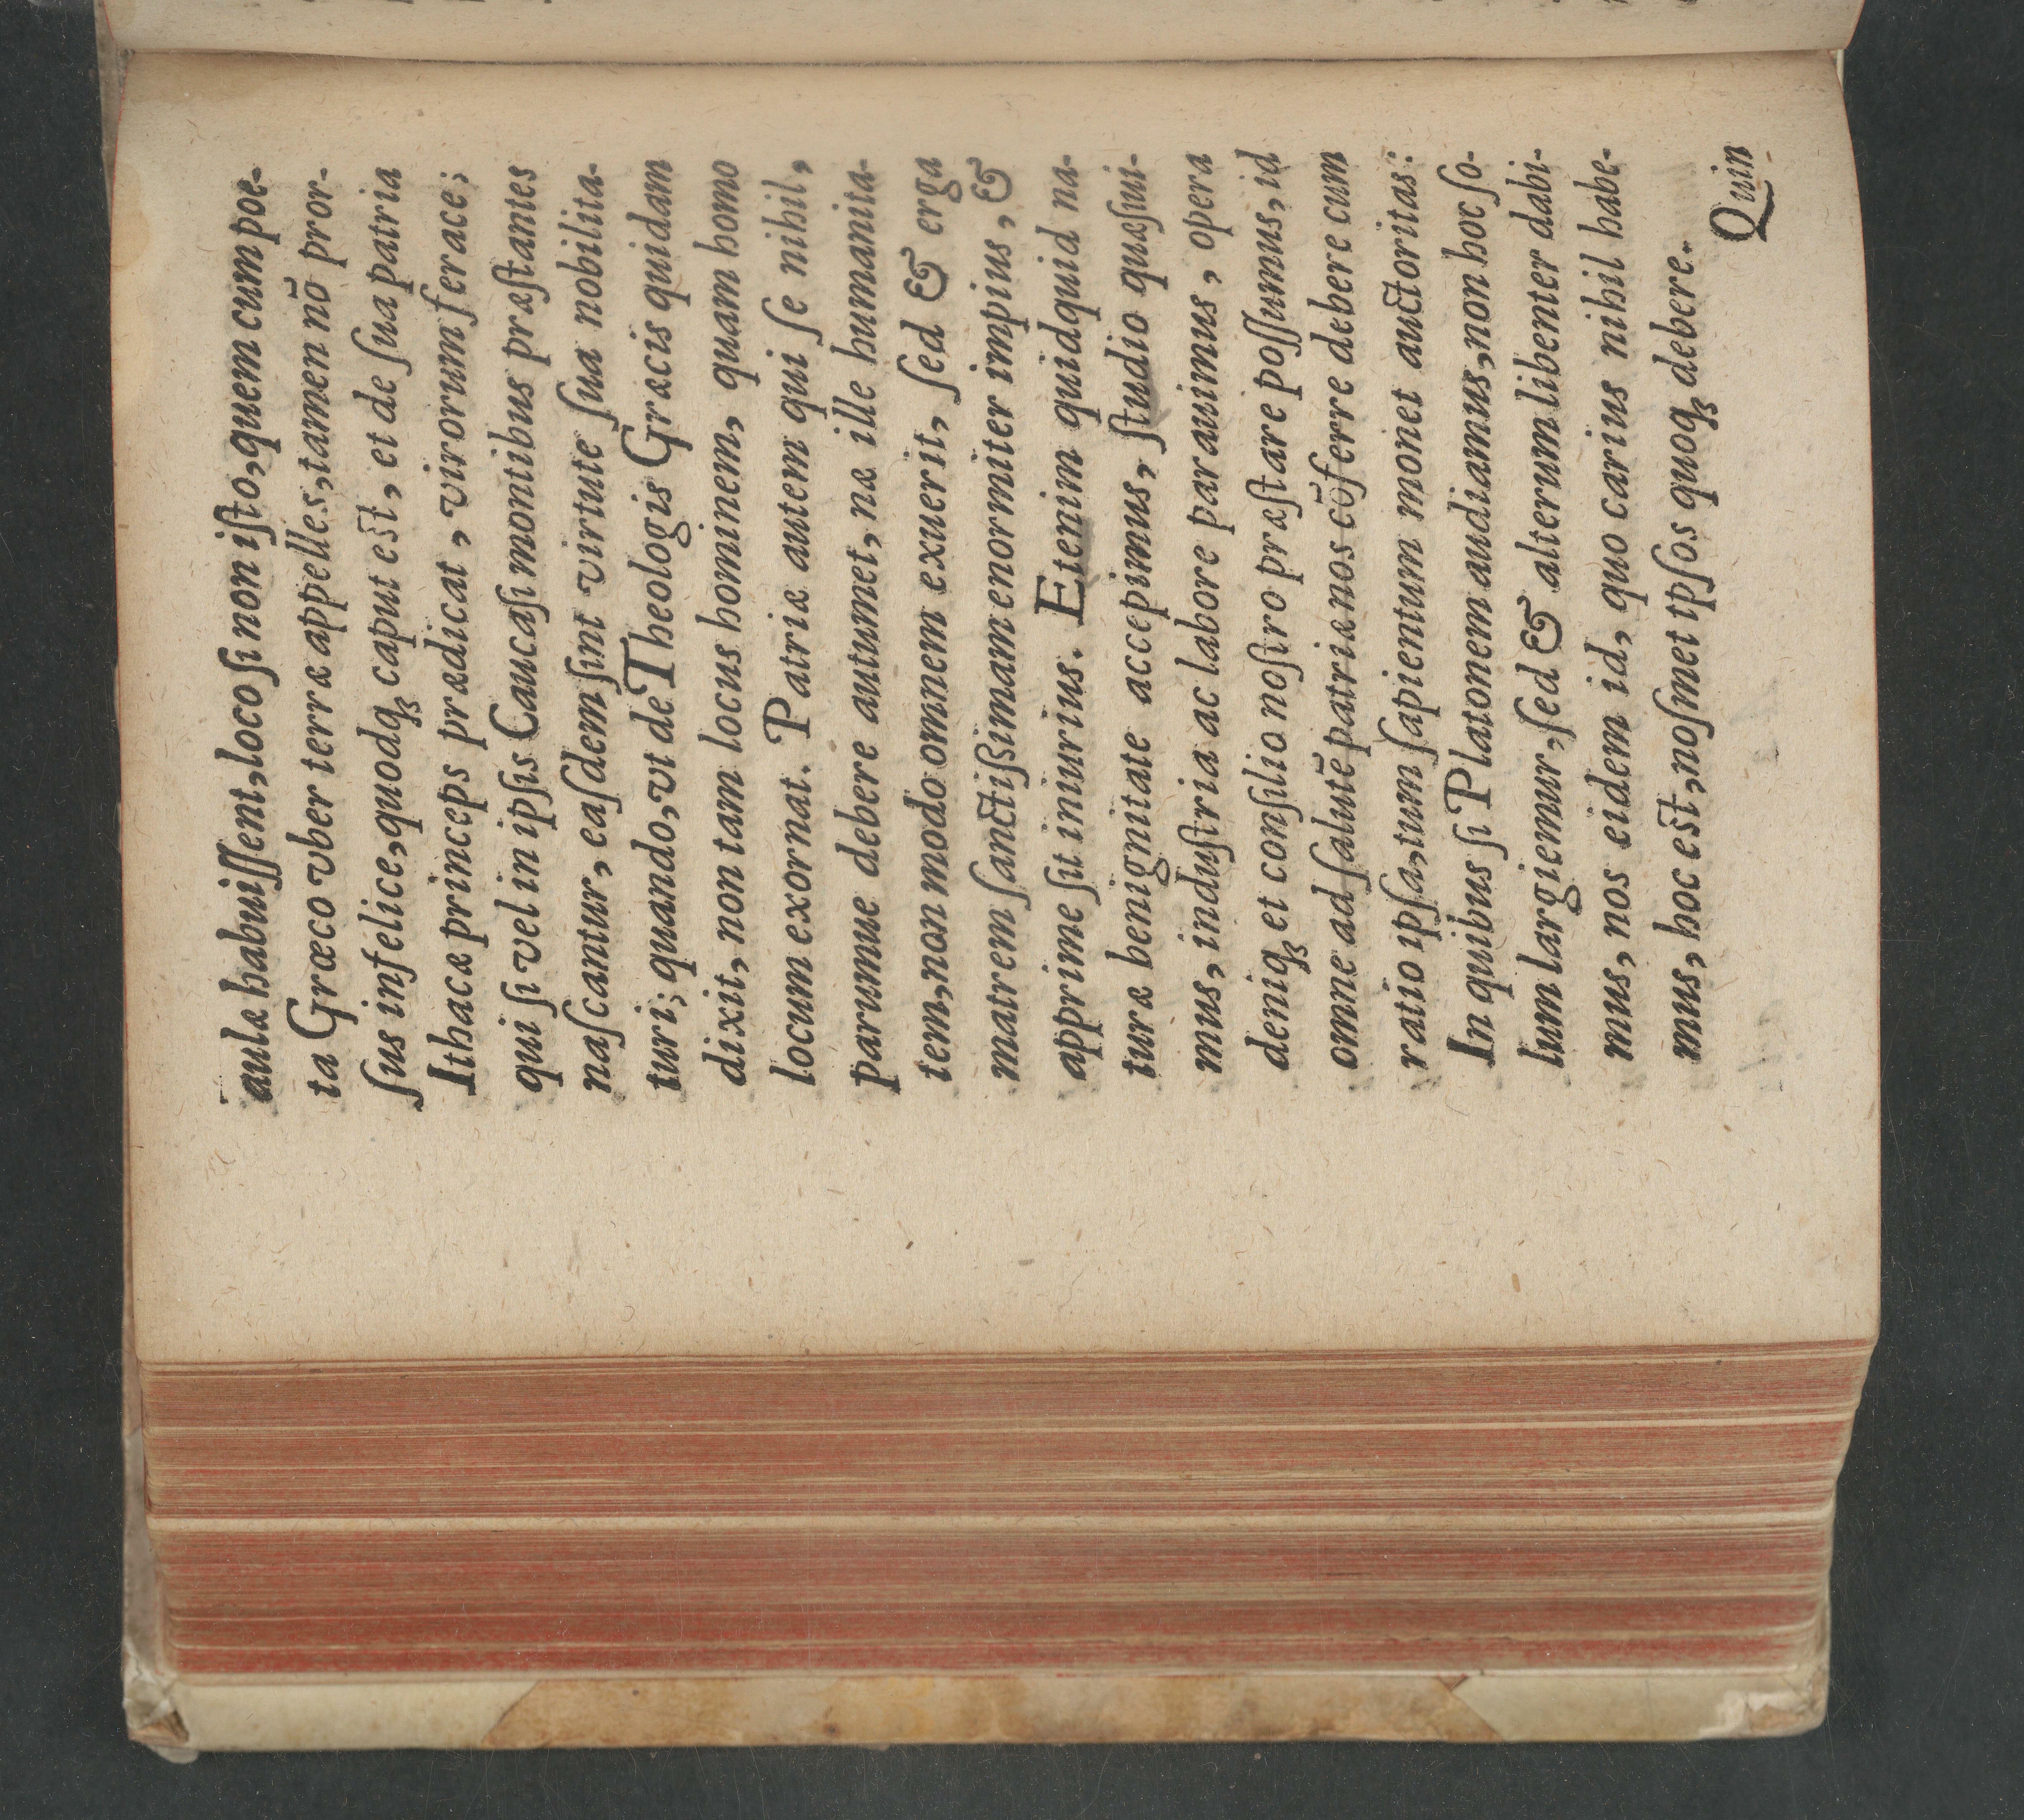 aulæ habuiſſent, loco ſi non iſto, quem cum poe-
ta Græco vber terræ appelles, tamen nō pror-
ſus infelice, quodqꝫ caput est, et de ſua patria
Ithacæ princeps prædicat, virorum ferace;
qui ſi vel in ipſis Caucaſi montibus præſtantes
naſcantur, eaſdem ſint virtute ſua nobilita-
turi; quando, vt de Theologis Græcis quidam
dixit, non tam locus hominem, quam homo
locum exornat. Patriæ autem qui ſe nihil,
parumue debere autumet, næ ille humanita-
tem, non modo omnem exuerit, ſed & erga
matrem ſanctißimam enormiter impius, &
apprime ſit iniurius. Etenim quidquid na-
turæ benignitate accepimus, ſtudio quæſiui-
mus, induſtria ac labore parauimus, opera
deniqꝫ et conſilio noſtro præſtare poſſumus, id
omne ad ſalutē patriæ nos cōferre debere cum
ratio ipſa, tum ſapientum monet auctoritas:
In quibus ſi Platonem audiamus, non hoc ſo-
lum largiemur, ſed & alterum libenter dabi-
mus, nos eidem id, quo carius nihil habe-
mus, hoc est, noſmet ipſos quoqꝫ debere.
Quin